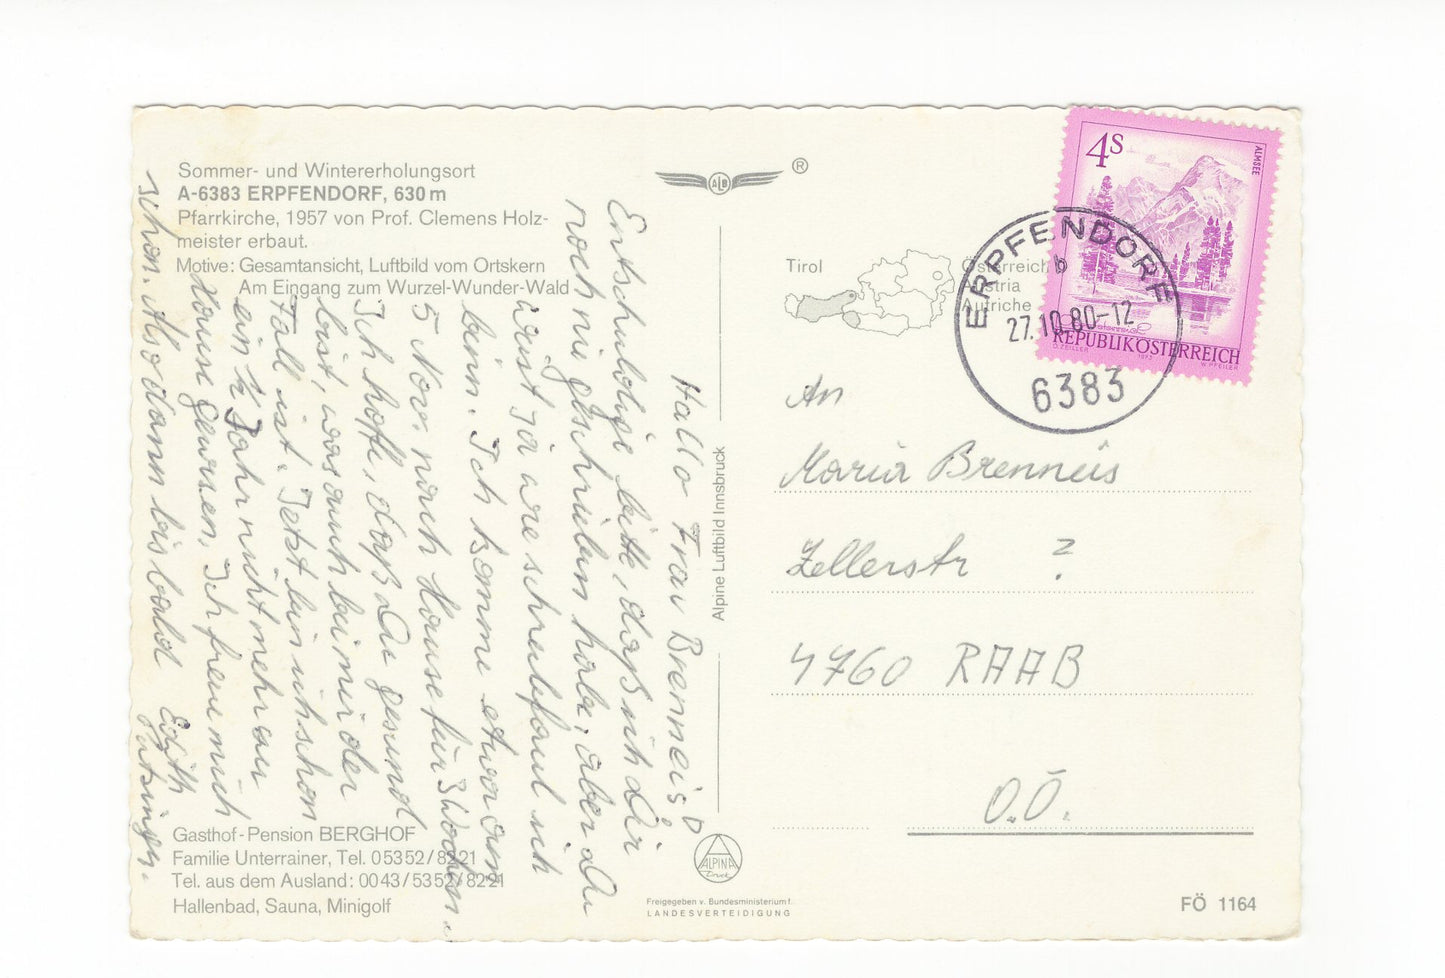 Sommer- und Wintererholungsort
A-6383 ERPFENDORF, 630 m
Pfarrkirche, 1957 von Prof. Clemens Holz-
meister erbaut.
Motive: Gesamtansicht, Luftbild vom Ortskern
Am Eingang zum Wurzel-Wunder-Wald
Hallo Frau Brenneis!
Entschuldige bitte, daß ich Dir
noch nie geschrieben habe, aber Du
weist ja wie schreibfaul ich
binn. Ich komme etwa am
5 Nov. nach Hause für 3 Wochen.
Ich hoffe, daß Du gesund
bist, was auch bei mir der
Fall ist. Jetzt bin ich schon
ein ½ Jahr nicht mehr zu
Hause gewesen. Ich freu mich
schon. Also dann bis bald
Edith
Gasthof-Pension BERGHOF
Familie Unterrainer, Tel. 05352/8221
Tel. aus dem Ausland: 0043/5352/8221
Hallenbad, Sauna, Minigolf
ALB
®
Alpine Luftbild Innsbruck
ALPINA
Druck
Freigegeben v. Bundesministerium f.
LANDESVERTEIDIGUNG
Tirol
Österreich
Austria
Autriche
4S
ALMSEE
REPUBLIK ÖSTERREICH
O. ZEILLER
1973
W. PFEILER
ERPFENDORF
b
27.10.80-12
6383
An
Maria Brenneis
Zellerstr ?
4760 RAAB
O.Ö.
FÖ 1164